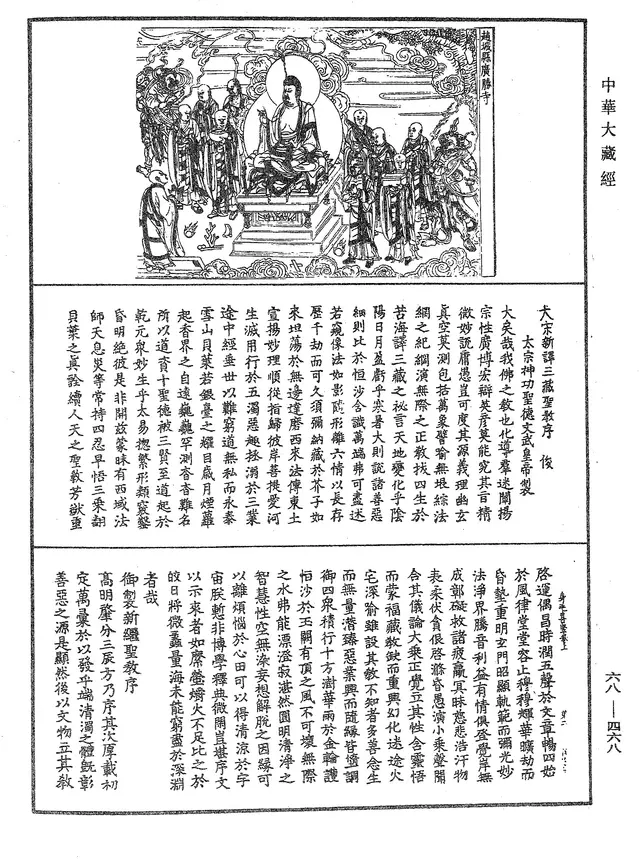 中華大藏經
趙城縣廣勝寺
大宋新譯三藏聖教序 俊
太宗神功聖德文武皇帝製
大矣哉我佛之教也化導羣迷闡揚
宗性廣博宏辯英彥莫能究其旨精
微妙說庸愚豈可度其源義理幽玄
真空莫測包括萬象譬喻無垠綜法
網之紀綱演無際之正教拔四生於
苦海譯三藏之秘言天地變化乎陰
陽日月盈虧乎寒暑大則說諸善惡
細則比於恒沙含識萬端弗可盡述
若窺像法如影隨形離六情以長存
歷千劫而可久須彌納藏於芥子如
來坦蕩於無邊達磨西來法傳東土
宣揚妙理順從指歸彼岸菩提愛河
生滅用行於五濁惡趣拯溺於三業
途中經垂世以難窮道無私而永泰
雪山貝葉若銀臺之耀目歲月煙蘿
起香界之自遠巍巍罕測杳杳難名
所以道資十聖德被三賢至道起於
乾元衆妙生乎太易揔繁形類竅鑿
昏明絕彼是非開茲蒙昧有西域法
師天息灾等常持四忍早悟三乘翻
貝葉之真詮續人天之聖教芳猷重
啓運偶昌時潤五聲於文章暢四始
於風律堂堂容止穆穆輝華曠劫而
昏墊重明玄門昭顯軌範而彌光妙
法淨界騰音利益有情俱登覺岸無
成鄣礙救諸疲羸冥昧慈悲浩汗物
表柔伏貪佷啓滌昏愚演小乘聲聞
合其儀論大乘正覺立其性含靈悟
而蒙福藏教缺而重興幻化迷途火
宅深喻雖設其教不知者多善念生
而無量潛臻惡業興而隨緣皆墮調
御四衆積行十方澍華雨於金輪護
恒沙於玉闕有頂之風不可壞無際
之水弗能漂澄寂湛然圓明清淨之
智慧性空無染妄想解脫之因緣可
以離煩惱於心田可以得清涼於宇
宙朕慙非博學釋典微閑豈堪序文
以示來者如廕螢爝火不足比之於
皎日將微蠡量海未能窮盡於深淵
者哉
御製新繼聖教序
高明肇分三辰方乃序其次厚載初
定萬彙於以發乎端清濁之體旣彰
善惡之源是顯然後以文物立其教
六八—四六八